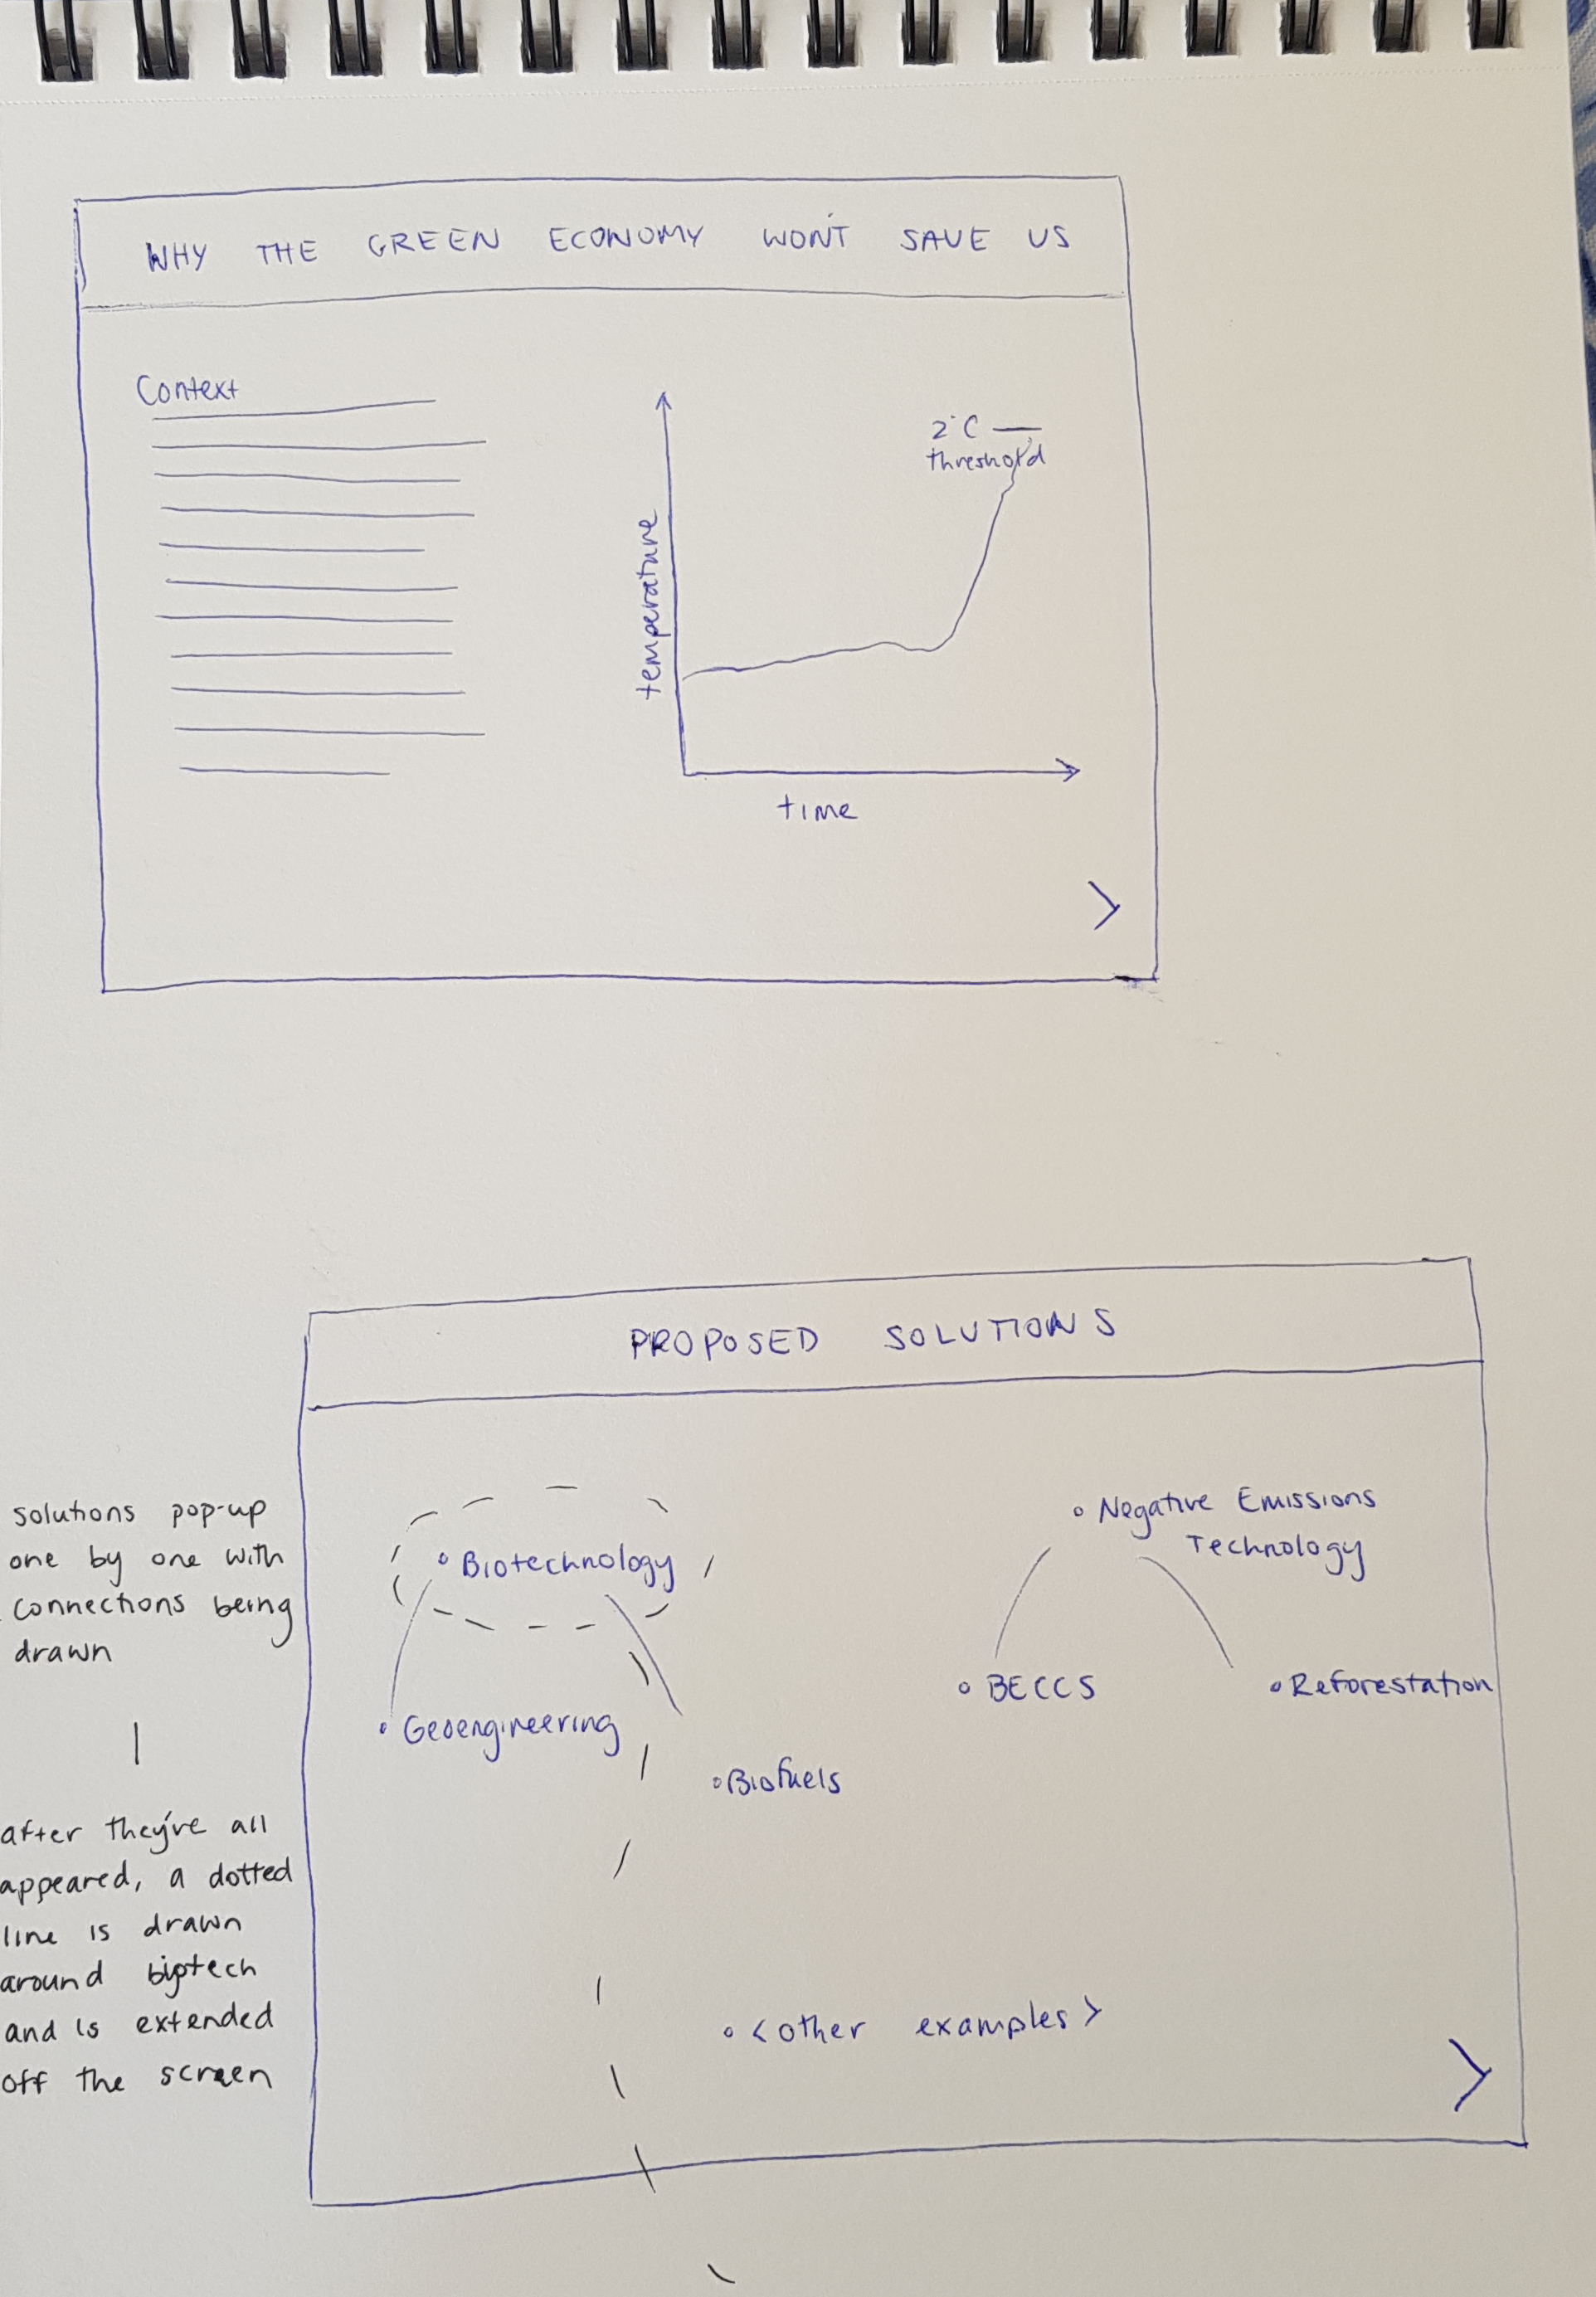 WHY THE GREEN ECONOMY WON'T SAVE US
Context
2°C
threshold
temperature
time
>
PROPOSED SOLUTIONS
solutions pop-up
one by one with
connections being
drawn
after they're all
appeared, a dotted
line is drawn
around biotech
and is extended
off the screen
Biotechnology
Geoengineering
Biofuels
Negative Emissions
Technology
BECCS
Reforestation
<other examples>
>